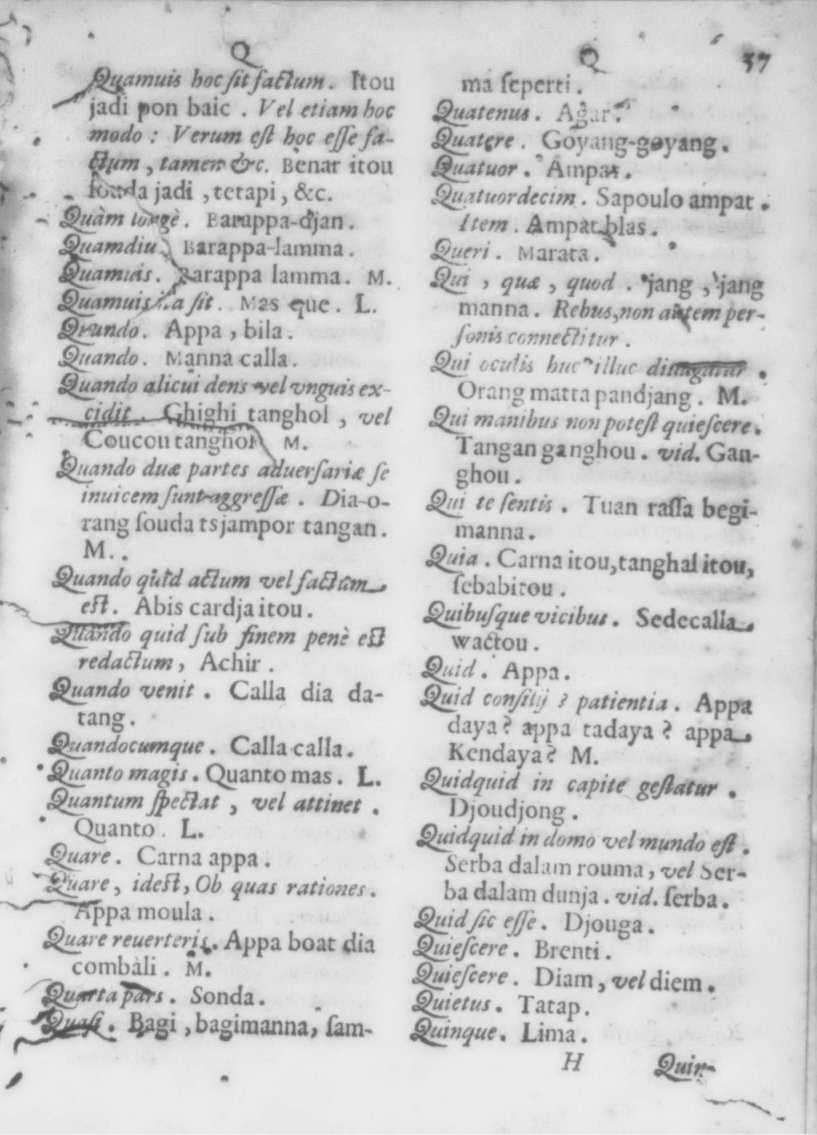 Q
Quamuis hoc ſit factum. Itou
jadi pon baic. Vel etiam hoc
modo: Verum eſt hoc eſſe fa-
ctum, tamen &c. Benar itou
ſouda jadi, tetapi, &c.
Quàm longè. Barappa-djan.
Quamdiu. Barappa-lamma.
Quamuis. Barappa lamma. M.
Quamuis ita ſit. Mas que. L.
Quando. Appa, bila.
Quando. Manna calla.
Quando alicui dens vel vnguis ex-
cidit. Ghighi tanghol, vel
Coucou tanghol. M.
Quando duæ partes aduerſariæ ſe
inuicem ſunt aggreſſæ. Dia-o-
rang ſouda tsjampor tangan.
M..
Quando quid actum vel factum
eſt. Abis cardja itou.
Quando quid ſub finem penè eſt
redactum, Achir.
Quando venit. Calla dia da-
tang.
Quandocumque. Calla calla.
Quanto magis. Quanto mas. L.
Quantum ſpectat, vel attinet.
Quanto. L.
Quare. Carna appa.
Quare, ideſt, Ob quas rationes.
Appa moula.
Quare reuerteris. Appa boat dia
combàli. M.
Quarta pars. Sonda.
Quaſi. Bagi, bagimanna, ſam-
Q 37
má ſeperti.
Quatenus. Agar.
Quatere. Goyang-goyang.
Quatuor. Ampat.
Quatuordecim. Sapoulo ampat.
Item. Ampat blas.
Queri. Marata.
Qui, quæ, quod. jang, jang
manna. Rebus, non autem per-
ſonis connectitur.
Qui oculis huc illuc diuagatur.
Orang matta pandjang. M.
Qui manibus non poteſt quieſcere.
Tangan ganghou. vid. Gan-
ghou.
Qui te ſentis. Tuan raſſa begi-
manna.
Quia. Carna itou, tanghal itou,
ſebabitou.
Quibuſque vicibus. Sedecalla
wactou.
Quid. Appa.
Quid conſilij? patientia. Appa
daya? appa tadaya? appa
Kendaya? M.
Quidquid in capite geſtatur.
Djoudjong.
Quidquid in domo vel mundo eſt.
Serba dalam rouma, vel Ser-
ba dalam dunja. vid. ſerba.
Quid ſic eſſe. Djouga.
Quieſcere. Brenti.
Quieſcere. Diam, vel diem.
Quietus. Tatap.
Quinque. Lima.
H Quin-